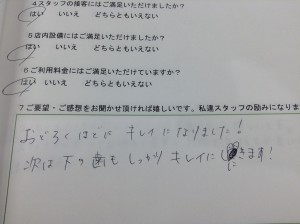 4スタッフの接客にはご満足いただけましたか?
はい いいえ どちらともいえない
5店内設備にはご満足いただけましたか?
はい いいえ どちらともいえない
6ご利用料金にはご満足いただけていますか?
はい いいえ どちらともいえない
7ご要望・ご感想をお聞かせ頂ければ嬉しいです。私達スタッフの励みになりま
おどろくほどに キレイになりました!
次は下の歯もしっかりキレイにしにきます!